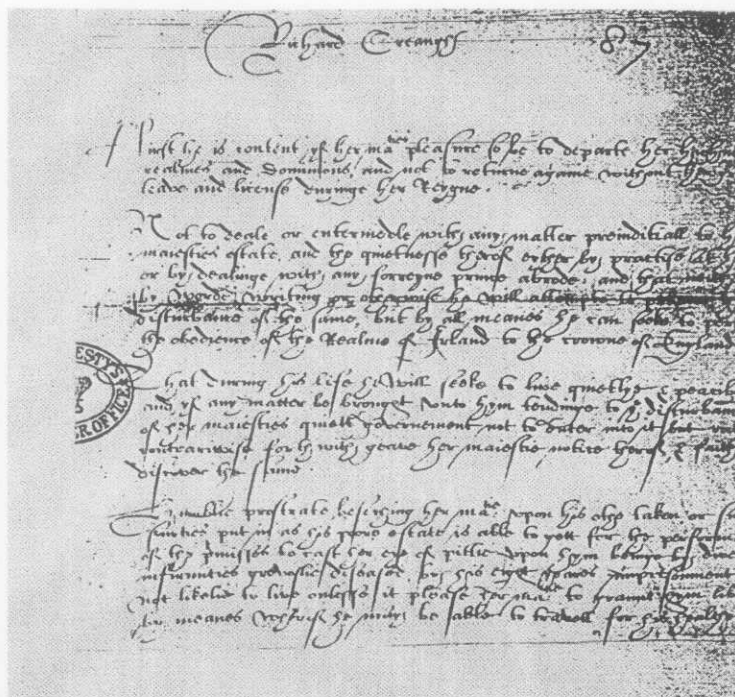 Richard Creaugh 87
First he is content yf her ma^ties pleasure so be to departe her
realmes and dominions, and not to returne agayne without her
leave and licens duringe her Reygne.
Not to deale or entermedle with any matter preiudiciall to
maiesties estate, and the quietnesse therof ether by practise
or by dealinge with any forreyne prince abrode, and that
by worde, writing or otherwise he will attempte
disturbance of the same, but by all meanes he can seeke to
the obedience of the Realme of Irland to the crowne of England
That during his life he will seeke to live quietly & peacibly
and yf any matter be brought unto hym tendinge to
of her maiesties quiett governement not to enter into it but
contrariwise forthwith geave her maiestie notice therof, & faith
discover the same.
Humblie prostrate, beseching her ma^tie upon his othe taken or
surties put in as his pore estate is able to gett for the
of the p'misses to cast her eye of pittie upon hym
infirmities grevouse diseases by his eight yeares imprisonment
not likelie to live onlesse it please her ma^tie to graunt hym
meanes he may be able to travell for his
MAJESTYS
OFFICE